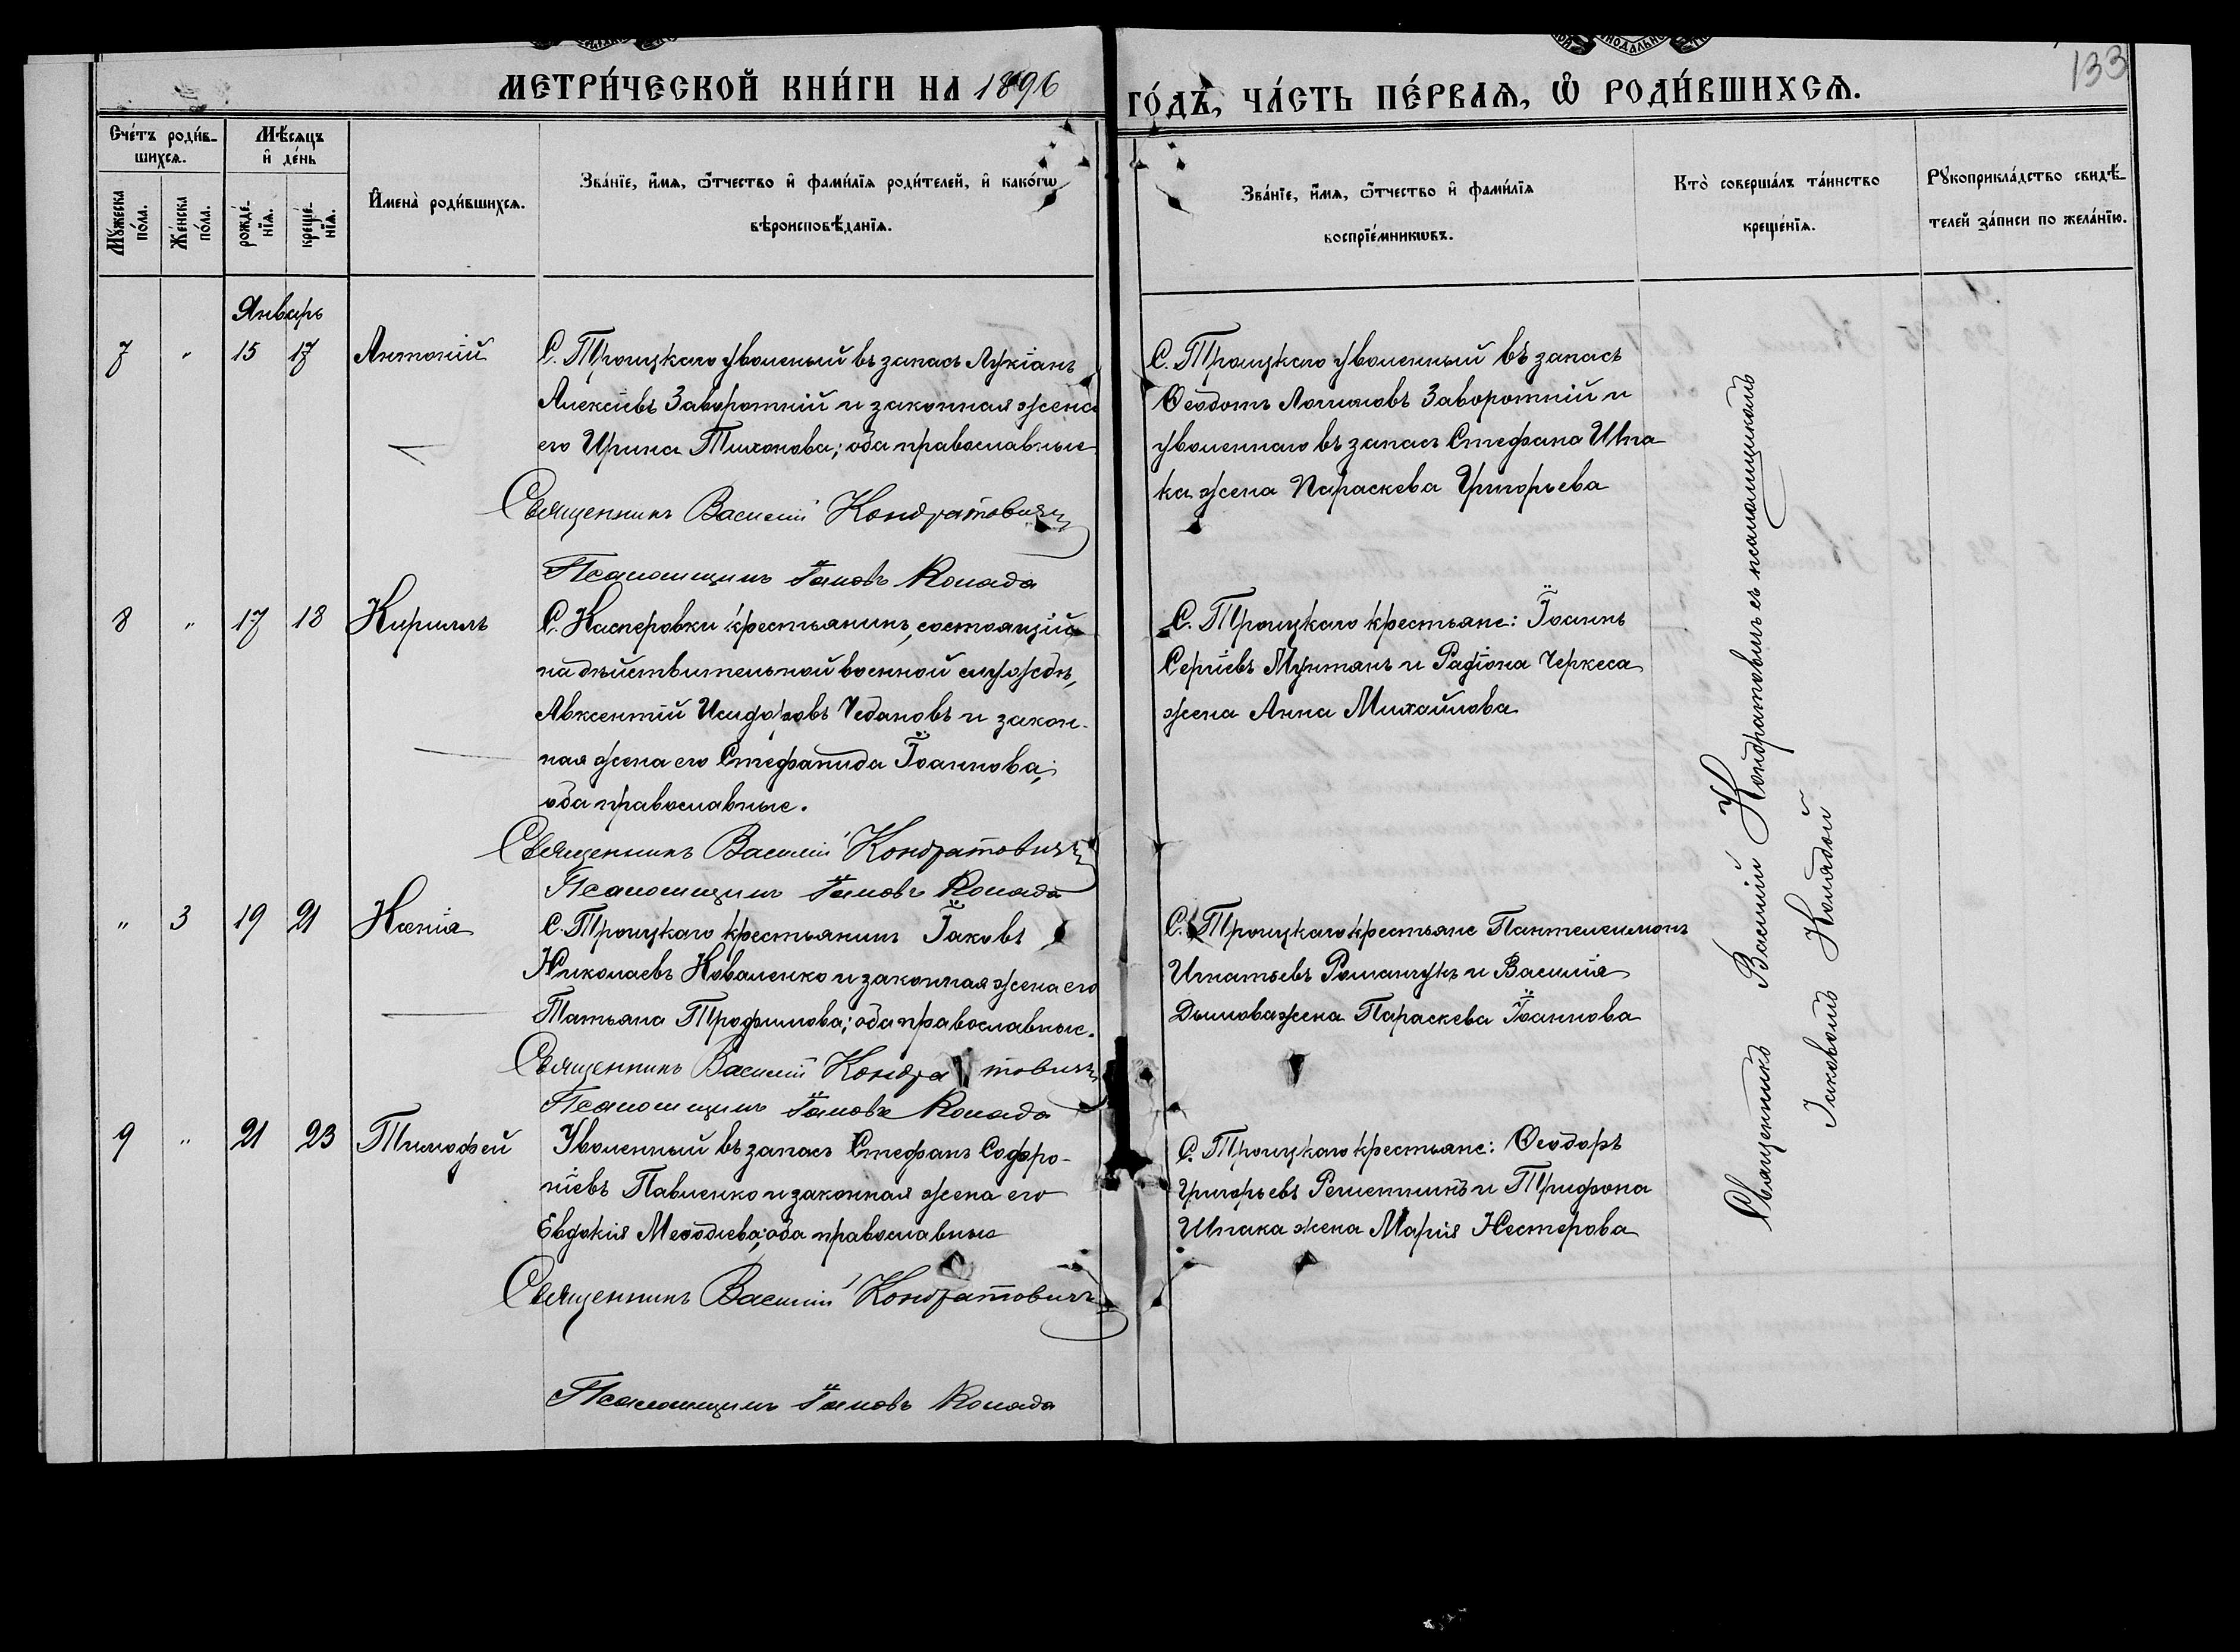 МЕТРИ́ЧЕСКОЙ КНИ́ГИ НА 1896 ГО́ДЪ, ЧА́СТЬ ПЕ́РВАѦ, Ѡ҆ РОДИ́ВШИХСѦ.
133
Сче́тъ роди́в-
шихсѧ.
Мѣ́сѧцъ
и҆ де́нь
Мꙋ́жеска
по́ла.
Же́нска
по́ла.
рожде́-
нїѧ.
креще́-
нїѧ.
И҆мена̀ роди́вшихсѧ.
Зва́нїе, и҆́мѧ, ѻ҆́тчество и҆ фами́лїѧ роди́телей, и҆ како́гѡ
вѣроисповѣ́данїѧ.
Зва́нїе, и҆́мѧ, ѻ҆́тчество и҆ фами́лїѧ
воспрїе́мникѡвъ.
Кто̀ соверша́лъ та́инство
креще́нїѧ.
Рꙋкоприкла́дство свидѣ́-
телей за́писи по жела́нїю.
Январь
7 " 15 17 Антоній
С. Троицкаго уволеный въ запасъ Лукіанъ
Алексіевъ Заворотній и законная жена
его Ирина Тихонова; оба православные
Священникъ Василій Кондратовичъ
Псаломщикъ Іаковъ Коляда
С. Троицкаго уволенный въ запасъ
Ѳеодотъ Логиновъ Заворотній и
уволеннаго въ запасъ Стефана Шпа
ка жена Параскева Григорьева
8 " 17 18 Кириллъ
С. Касперовки крестьянинъ, состоящій
на дѣйствительной военной службѣ,
Авксентій Исидоровъ Чебановъ и закон-
ная жена его Стефанида Іоаннова;
оба православные.
Священникъ Василій Кондратовичъ
Псаломщикъ Іаковъ Коляда
С. Троицкаго крестьяне: Іоаннъ
Сергіевъ Мунтянъ и Радіона Черкеса
жена Анна Михайлова
" 3 19 21 Ксенія
С. Троицкаго крестьянинъ Іаковъ
Николаевъ Коваленко и законная жена его
Татьяна Трофимова; оба православные.
Священникъ Василій Кондратовичъ
Псаломщикъ Іаковъ Коляда
С. Троицкаго крестьяне Пантелеимонъ
Игнатьевъ Романчукъ и Василія
Дымова жена Параскева Іоаннова
9 " 21 23 Тимофей
Уволенный въ запасъ Стефанъ Софро-
ніевъ Павленко и законная жена его
Евдокія Меѳодіева; оба православные
Священникъ Василій Кондратовичъ
Псаломщикъ Іаковъ Коляда
С. Троицкаго крестьяне: Ѳеодоръ
Григорьевъ Решетникъ и Трифона
Шпака жена Марія Нестерова
Священникъ Василій Кондратовичъ съ псаломщикомъ
Іаковомъ Колядой